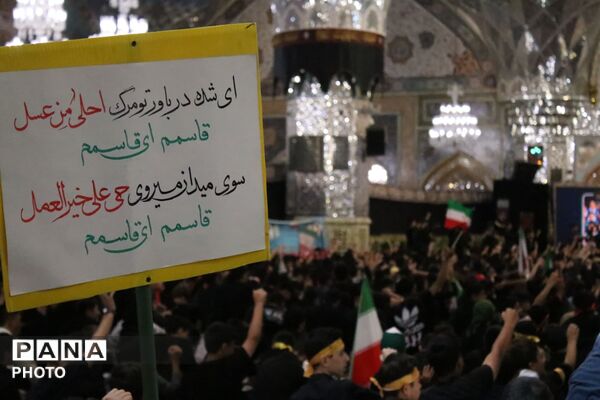 ای شده در باور تو مرگ احلی مِن عسل
قاسمم ای قاسمم
سوی میدان میروی حی علی خیرالعمل
قاسمم ای قاسمم
PANA
PHOTO